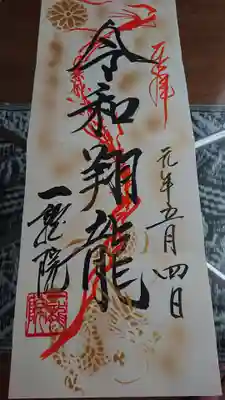 奉拝
元年五月四日
令和翔龍
一龍院